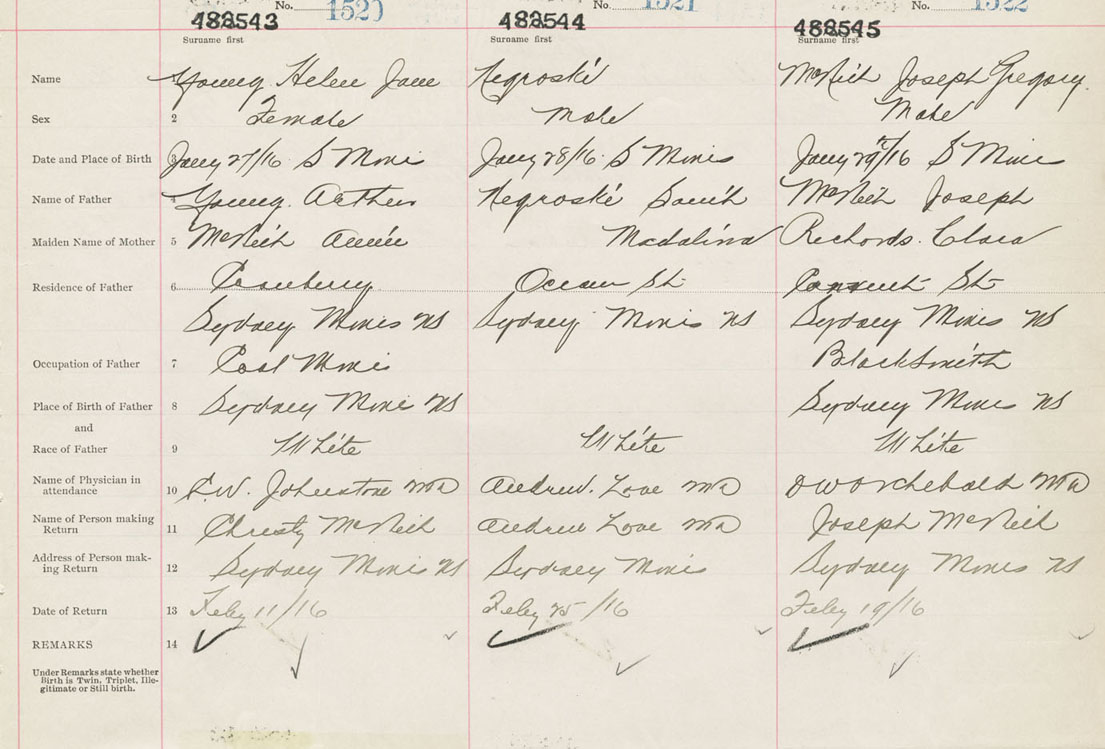 No. 1520 No. 1521 No. 1522
488543 488544 488545
Surname first Surname first Surname first
Name 1 Young Helen Jane Negroski McNeil Joseph Gregory
Sex 2 Female Male Male
Date and Place of Birth 3 Jany 27/16 S Mines Jany 28/16 S Mines Jany 29th/16 S Mines
Name of Father 4 Young Arthur Negroski McNeil Joseph
Maiden Name of Mother 5 McNeil Annie Madalina Richards. Clara
Residence of Father 6 Ocean St St
Sydney Mines NS Sydney Mines NS Sydney Mines NS
Occupation of Father 7 Coal Miner BlackSmith
Place of Birth of Father 8 Sydney Mines NS Sydney Mines NS
and
Race of Father 9 White White White
Name of Physician in
attendance 10 Johnstone MD Andrew. Love MD Archibald MD
Name of Person making
Return 11 Christy McNeil Andrew Love MD Joseph McNeil
Address of Person mak-
ing Return 12 Sydney Mines NS Sydney Mines Sydney Mines NS
Date of Return 13 Feby 11/16 Feby 25/16 Feby 19/16
REMARKS 14
Under Remarks state whether
Birth is Twin, Triplet, Ille-
gitimate or Still birth.